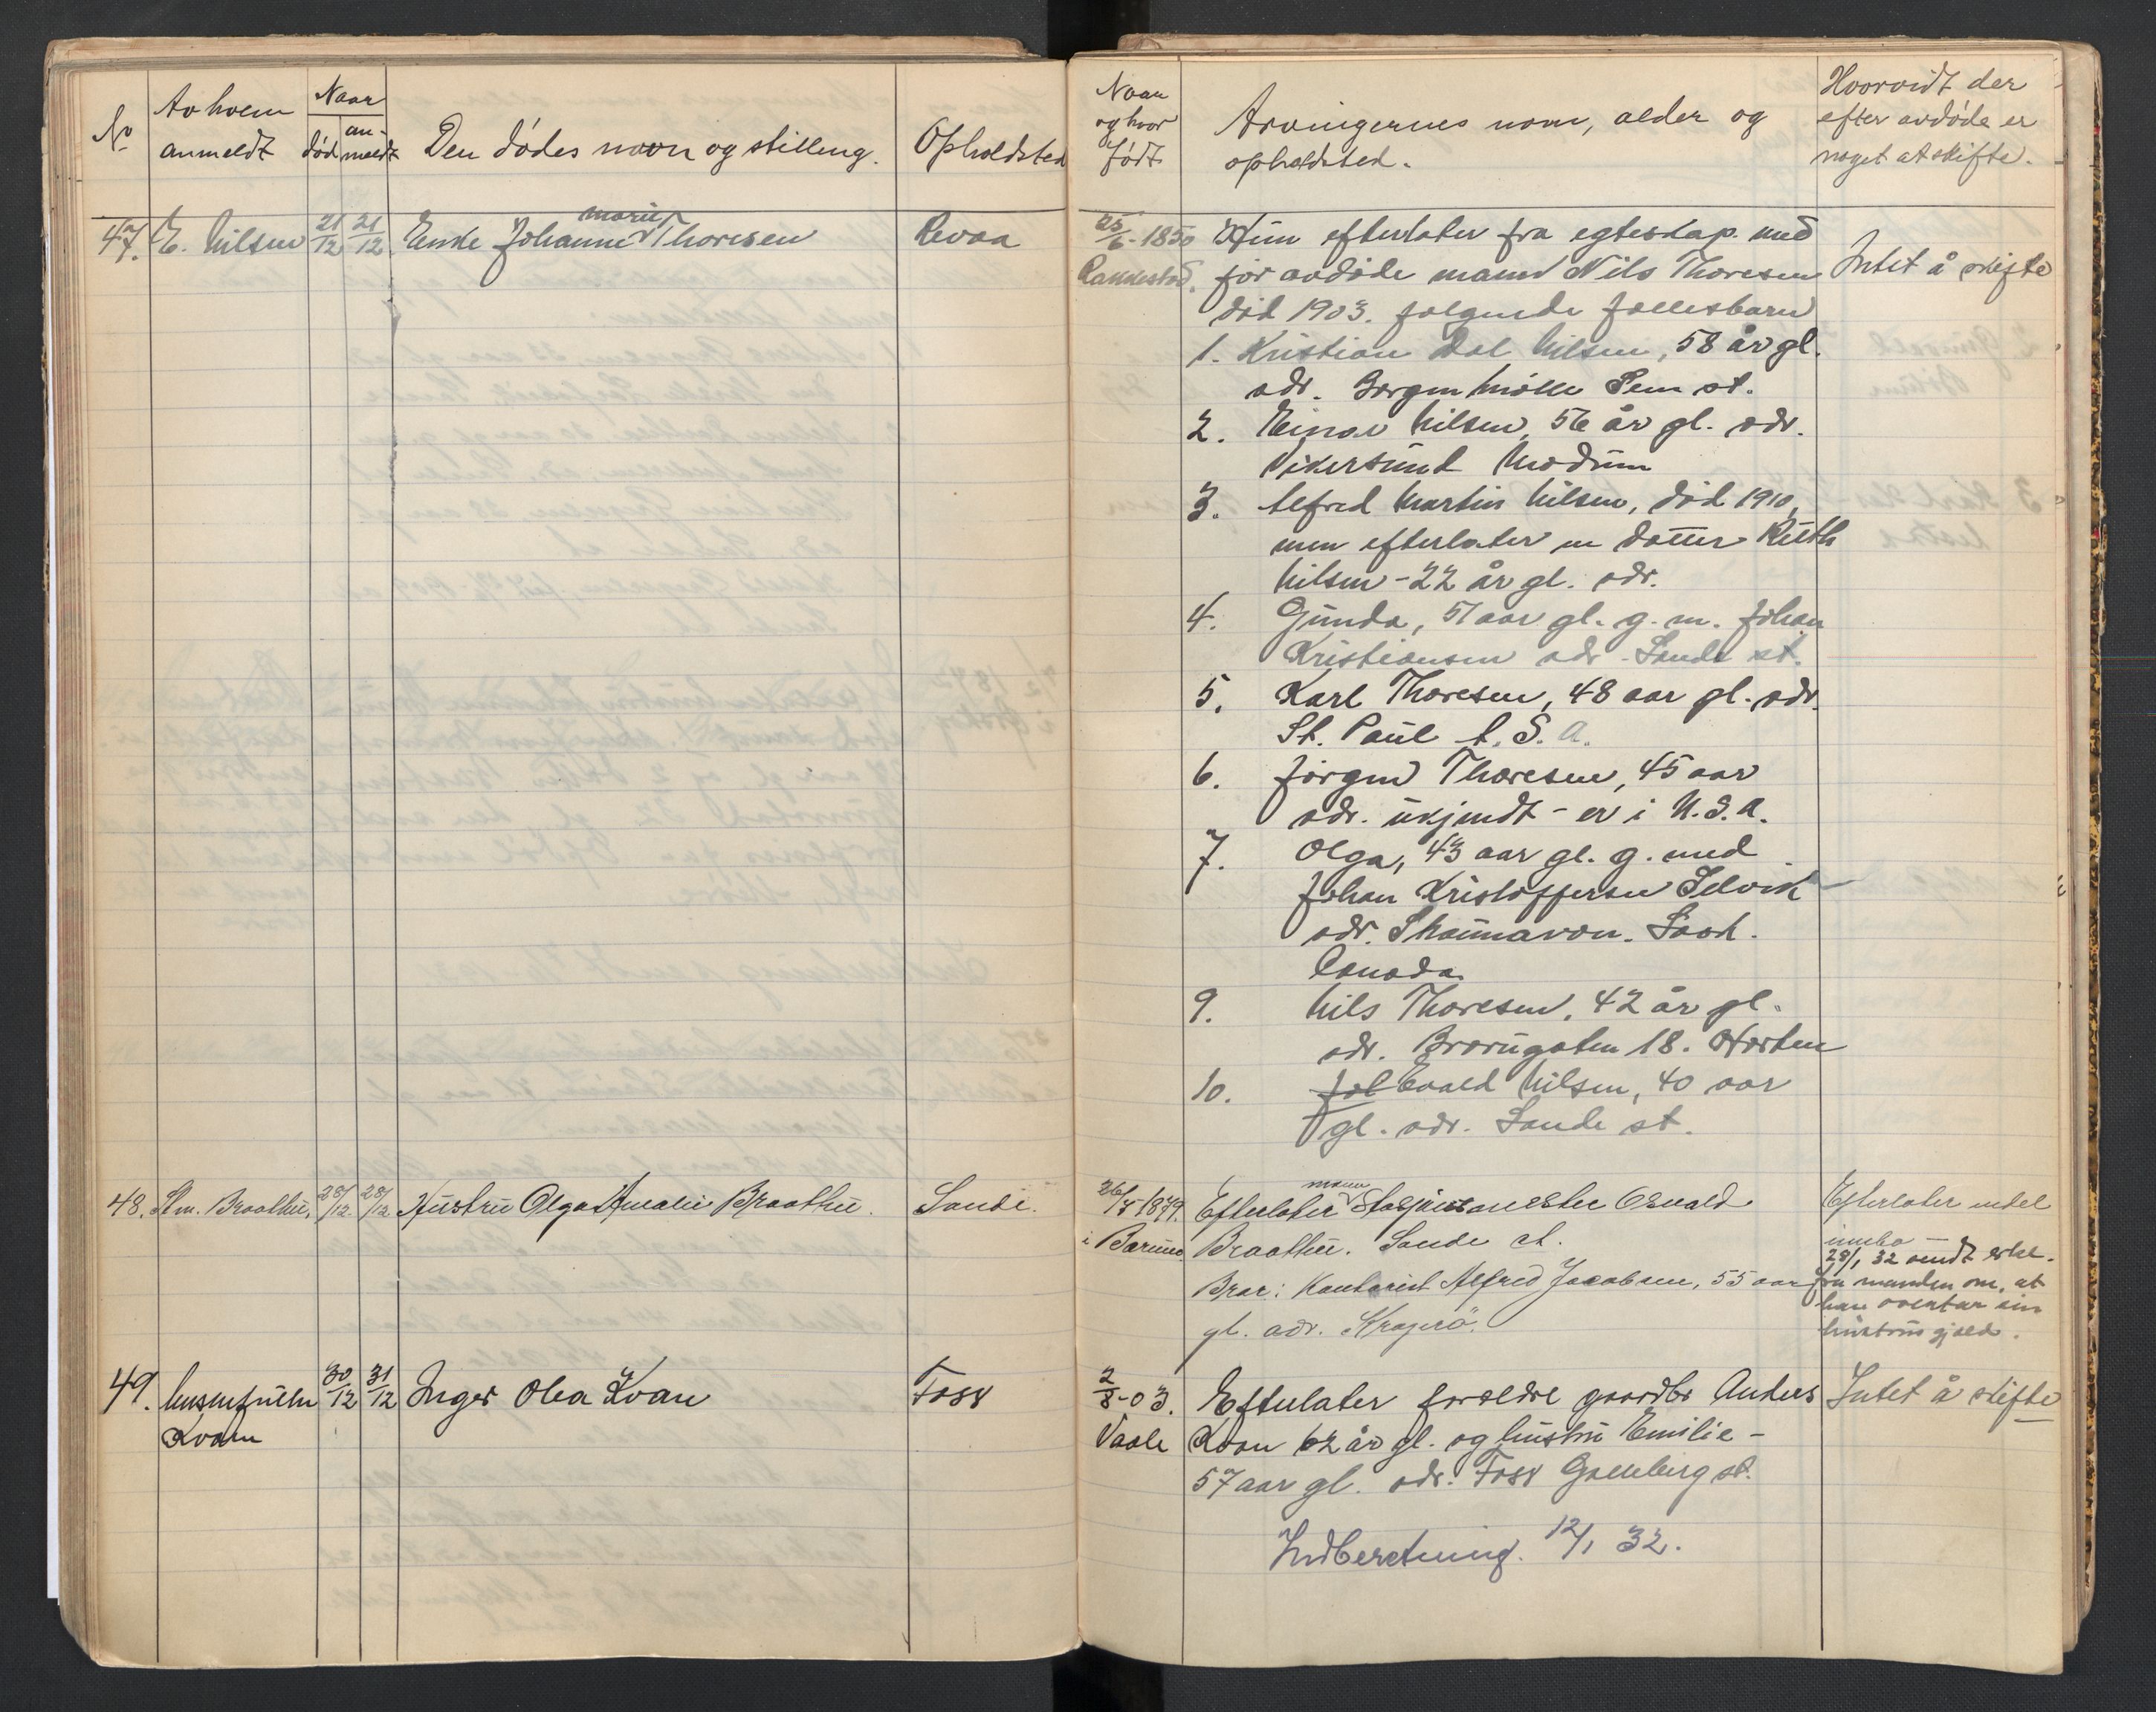 No
Av hvem
anmeldt
Naar
død
an-
meldt
Den dødes navn og stilling.
Opholdsted
Naar
og hvor
født
Arvingernes navn, alder og
opholdsted.
Hvorvidt der
efter avdøde er
noget at skifte.
47. E. Nilsen 21/12 21/12 Enke Johanne Marie Thoresen Revaa
25/6-1850
Hun efterlater fra egteskap med
før avdøde mand Nils Thoresen
Intet å skifte
død 1903. følgende fellesbarn
1. Kristian Dal Nilsen, 58 år gl.
adr. Bergen Mølle Sem st.
2. Einar Nilsen, 56 år gl. adr.
Vikersund Modum
3. Alfred Martin Nilsen, død 1910,
men efterlater en datter Ruth
Nilsen - 22 år gl. adr.
4. Gunda, 51 aar gl. g. m. Johan
Kristiansen adr. Sande st.
5. Karl Thoresen, 48 aar gl. adr.
St. Paul A. S. A.
6. Jørgen Thoresen, 45 aar
adr. ukjendt - er i U. S. A.
7. Olga, 43 aar gl. g. med
Johan Kristoffersen Selvik
adr. Shaunavon. Sask.
Canada
9. Nils Thoresen, 42 år gl.
adr. 18. Horten
10. Evald Nilsen, 40 aar
gl. adr. Sande st.
48. St.m. Braathen, 28/12 28/12 Hustru Olga Amalie Braathen. Sande.
26/5 1879.
i Bærum
Efterlater mann Stasjonsmester Osvald
Braathen. Sande st.
Bror: Kontorist Alfred Jacobsen, 55 aar
gl. adr. Kragerø.
Efterlater endel
innbo
28/1 32 sendt erkl.
fra manden om, at
han overtar sin
hustrus gjæld.
49. Lensmannen
Kvan
30/12 31/12 Inger Olea Kvan Foss
2/8-03.
Vaale
Efterlater foreldre gaardbr Anders
Kvan 62 år gl. og hustru Emilie -
57 aar gl. adr. Foss Galleberg st.
Intet å skifte
Indberetning. 12/1 32.